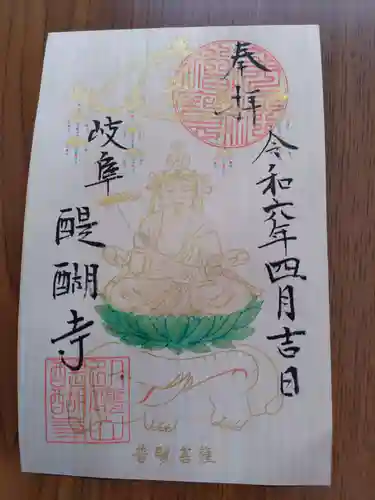 奉拝
令和六年四月吉日
岐阜
醍醐寺
普賢菩薩